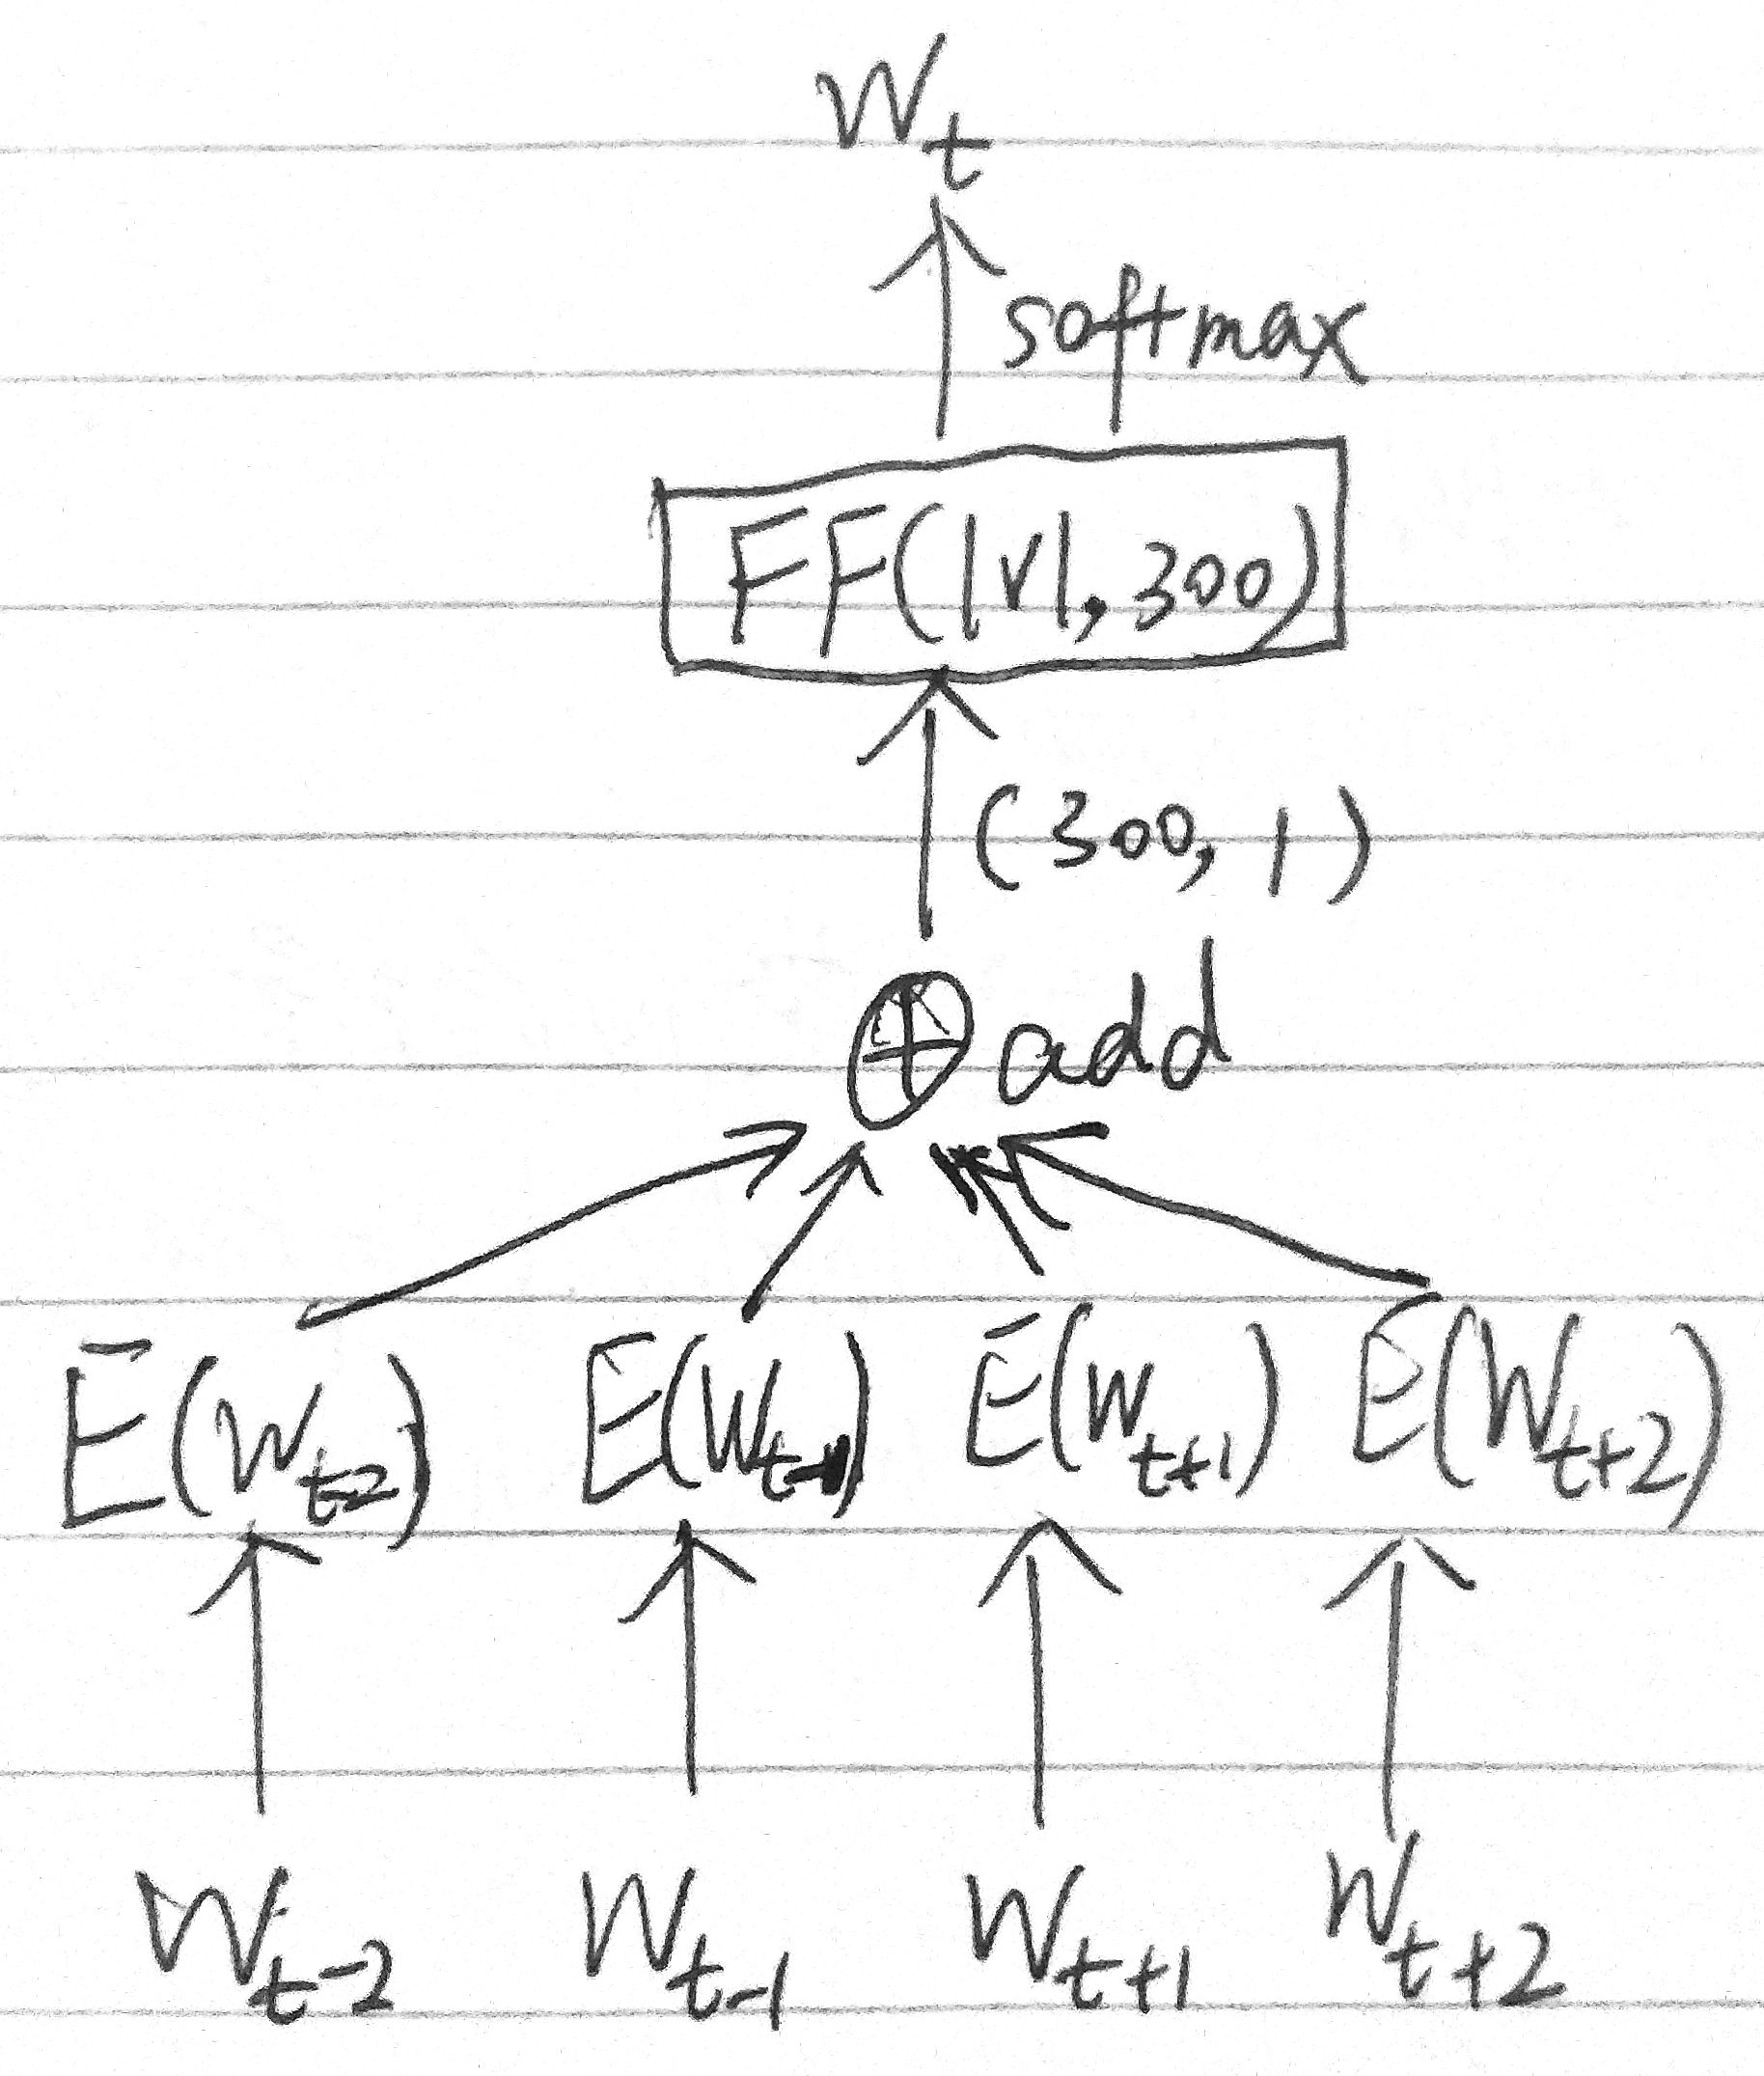 W_t
softmax
FF(|V|, 300)
(300, 1)
⊕ add
E(W_t-2) E(W_t-1) E(W_t+1) E(W_t+2)
W_t-2 W_t-1 W_t+1 W_t+2